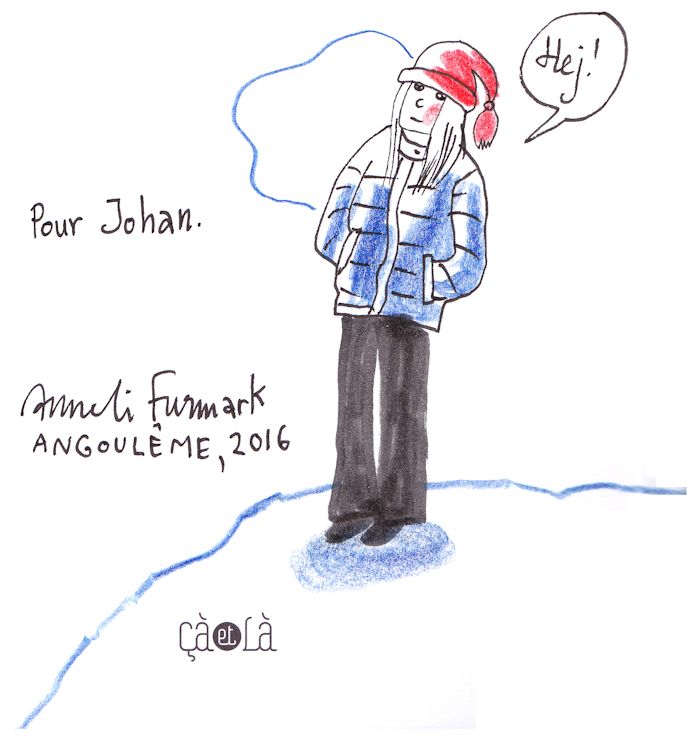 Hej!
Pour Johan.
Anneli Furmark
ANGOULÊME, 2016
çà et Là